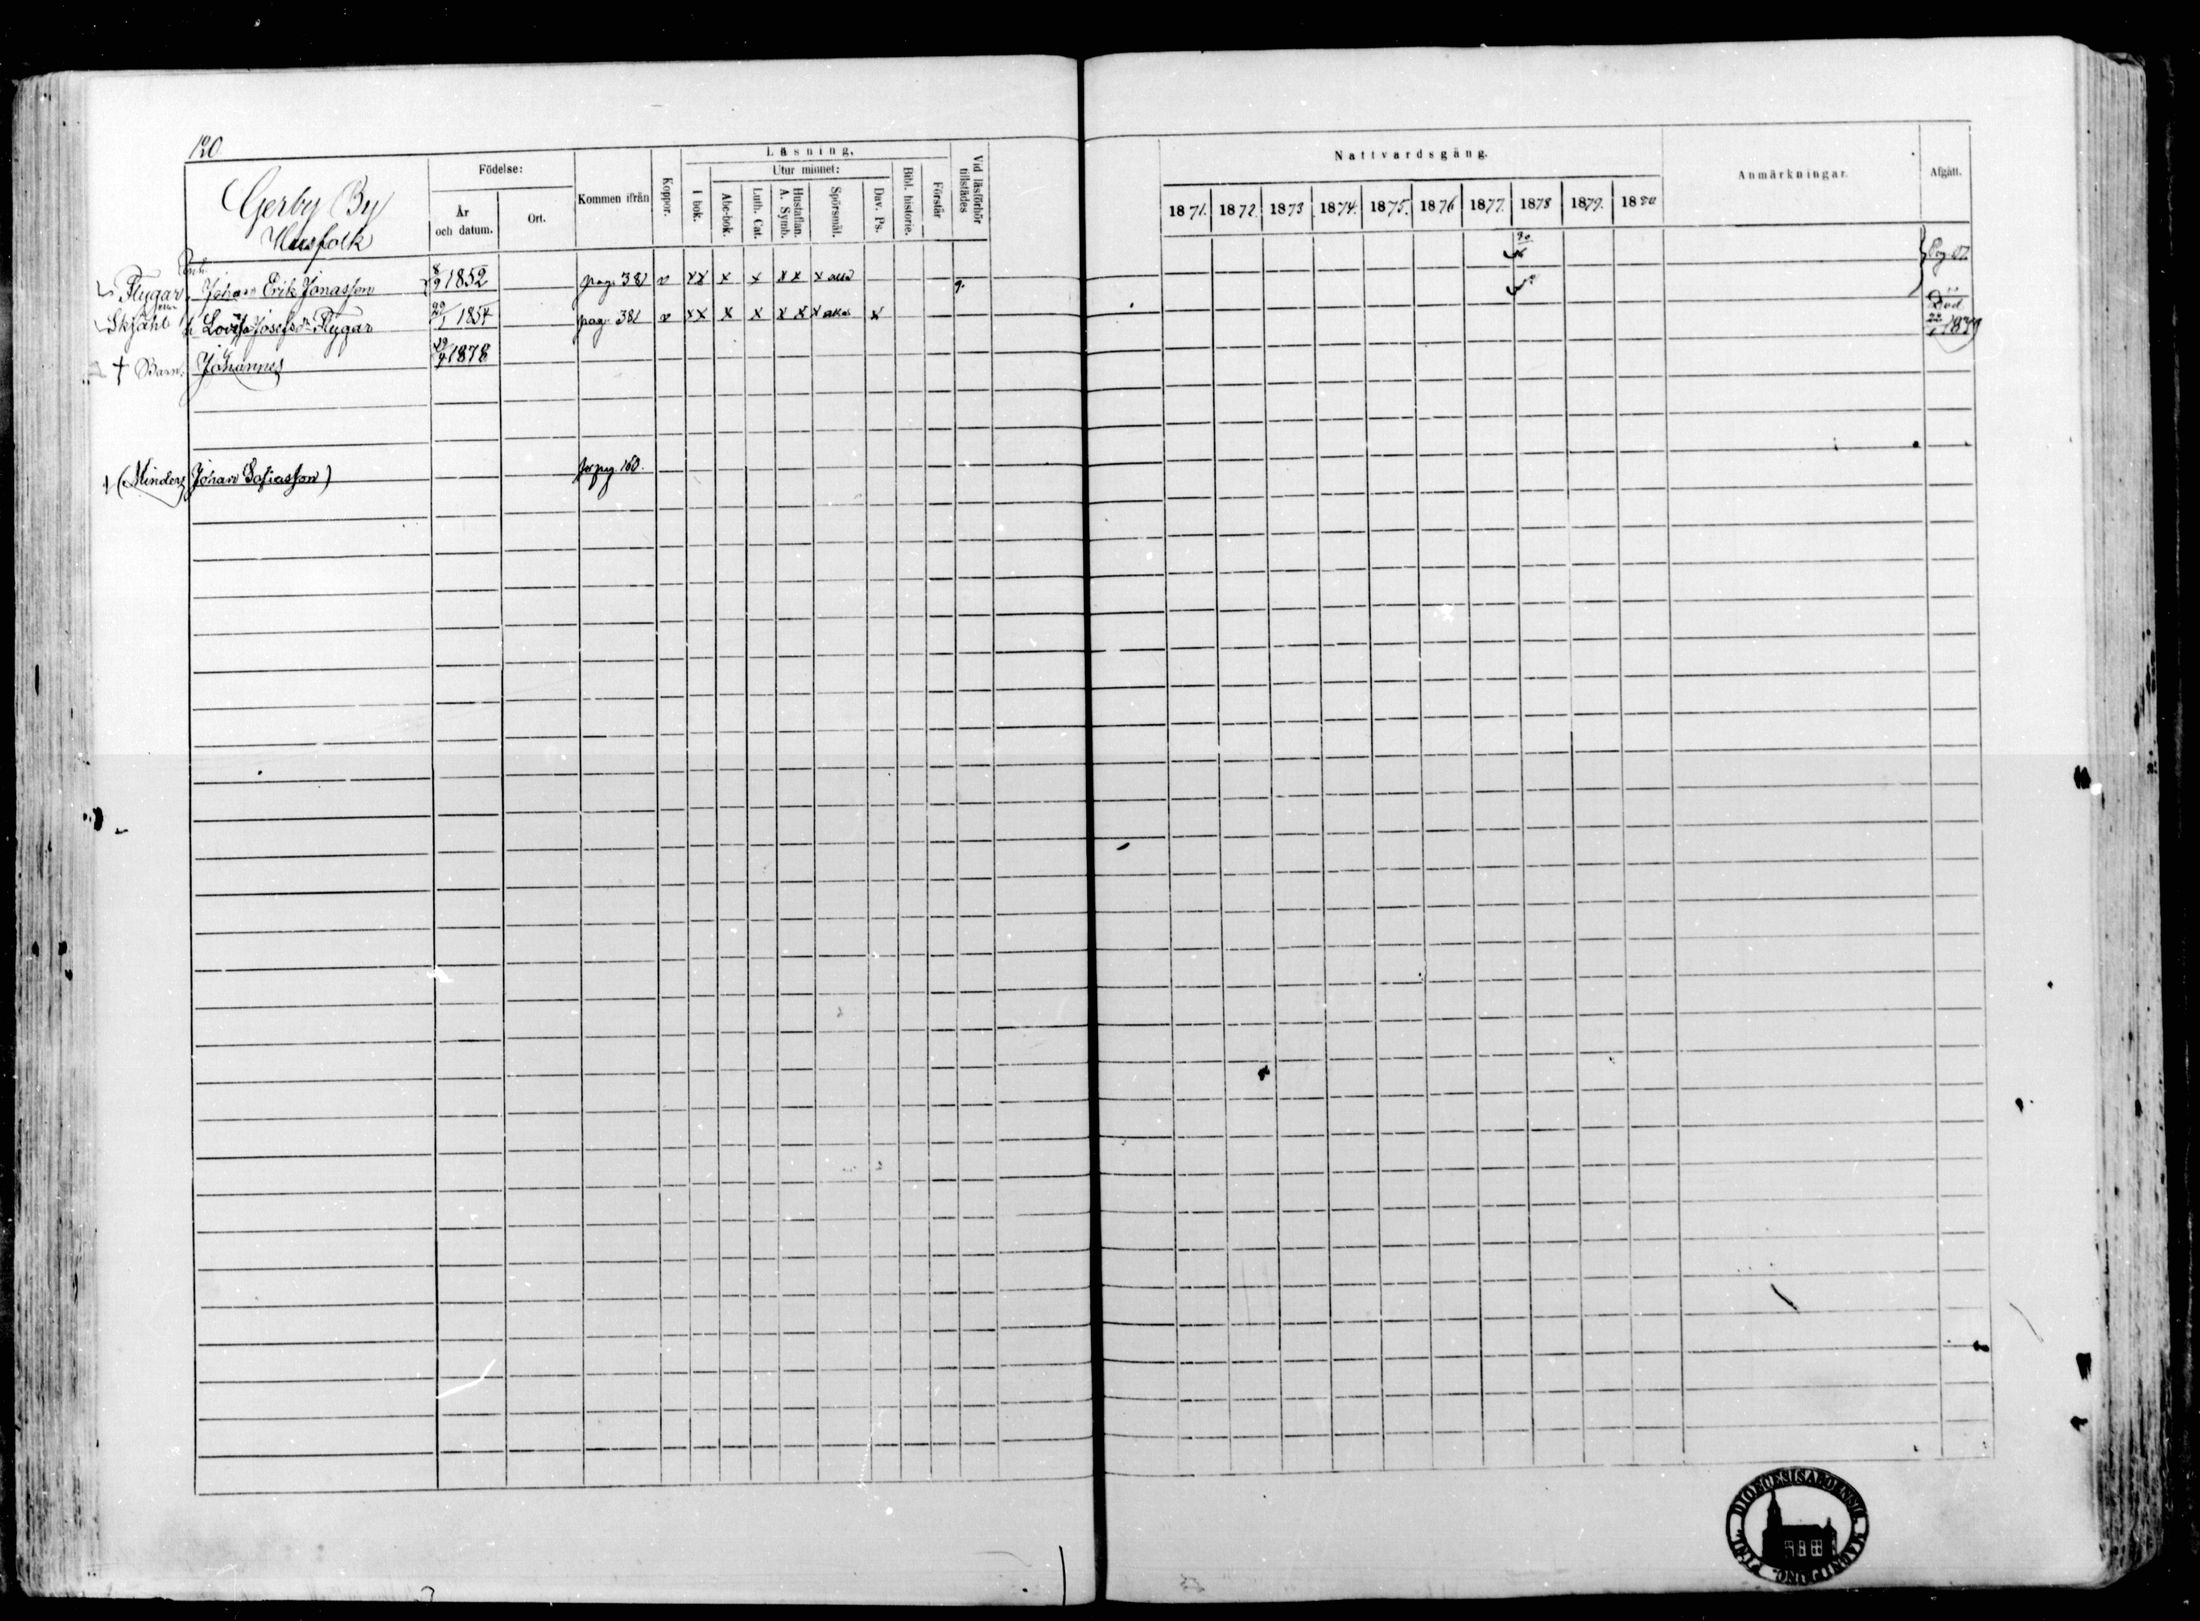 120
Gerby By
Husfolk
Födelse:
År och datum.
Ort.
Kommen ifrån
Koppor.
Läsning.
I bok.
Utur minnet:
Abc-bok.
Luth. Cat.
Hustaflan. A. Symb.
Spörsmål.
Dav. Ps.
Bibl. historie.
Förstår
Vid läsförhör tillstädes
Nattvardsgång.
1871. 1872 1873 1874. 1875. 1876 1877. 1878 1879. 1880
Anmärkningar.
Afgått.
Flygar Johan Erik Jonasson 8/9 1852 pag. 381 v xx x x x x x alla
Skjähl h. Lovisa Josefsdr Flygar 20/1 1854 pag. 381 v xx x x x x x x
† Barn: Johannes 29/4 1878 Död 22/1 1879
† (Minderj Johan Sofiasson) för pag. 160.
DIOECESIS ABOENSIS MAGNI DUC. FINL.